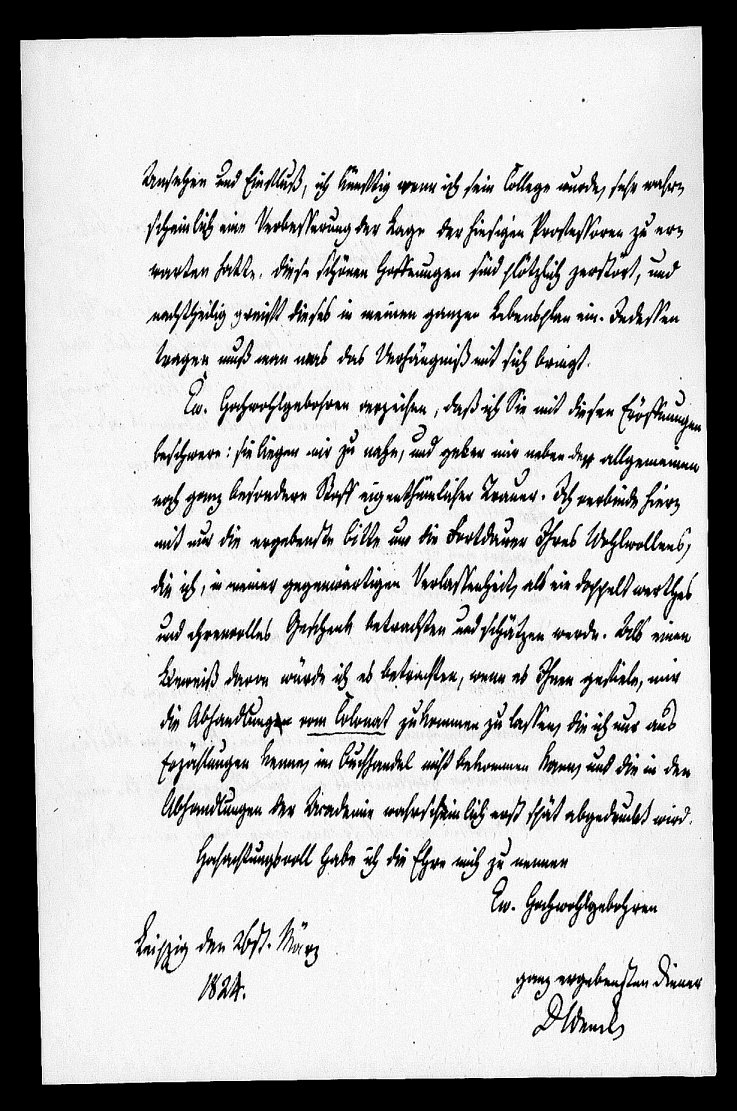 Ansehen und Einfluß, ich künftig wenn ich sein College wurde, sehr wahr-
scheinlich eine Verbesserung der Lage der hiesigen Professoren zu er-
warten hatte. Diese schönen Hoffnungen sind plötzlich zerstört, und
nachtheilig greift dieses in meinen ganzen Lebensplan ein. Indessen
tragen muß man was das Verhängniß mit sich bringt.
Ew. Hochwohlgebohren verzeihen, daß ich Sie mit diesen Eröffnungen
beschwere: sie liegen mir zu nahe, und geben mir neben der allgemeinen
noch ganz besondern Stoff eigenthümlicher Trauer. Ich verbinde hier-
mit nur die ergebenste Bitte um die Fortdauer Ihres Wohlwollens,
die ich, in meiner gegenwärtigen Verlassenheit, als ein doppelt werthes
und ehrenvolles Geschenk betrachten und schätzen werde. Als einen
Beweiß davon würde ich es betrachten, wenn es Ihnen gefiele, mir
die Abhandlung vom Colonat zukommen zu lassen, die ich nur aus
Erzählungen kenne, im Buchhandel nicht bekommen kann, und die in den
Abhandlungen der Academie wahrscheinlich erst spät abgedruckt wird.
Hochachtungsvoll habe ich die Ehre mich zu nennen
Ew. Hochwohlgebohren
Leipzig den 26st. März
1824.
ganz ergebensten Diener
D Wenck